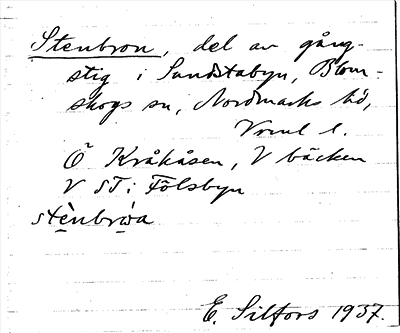 Stenbron, del av gång-
stig i Sandstabyn, Blom-
skogs sn, Nordmarks hd,
Vrml l.
Ö Kråkåsen, V bäcken
V ST i Fölsbyn
E. Silfors 1937.